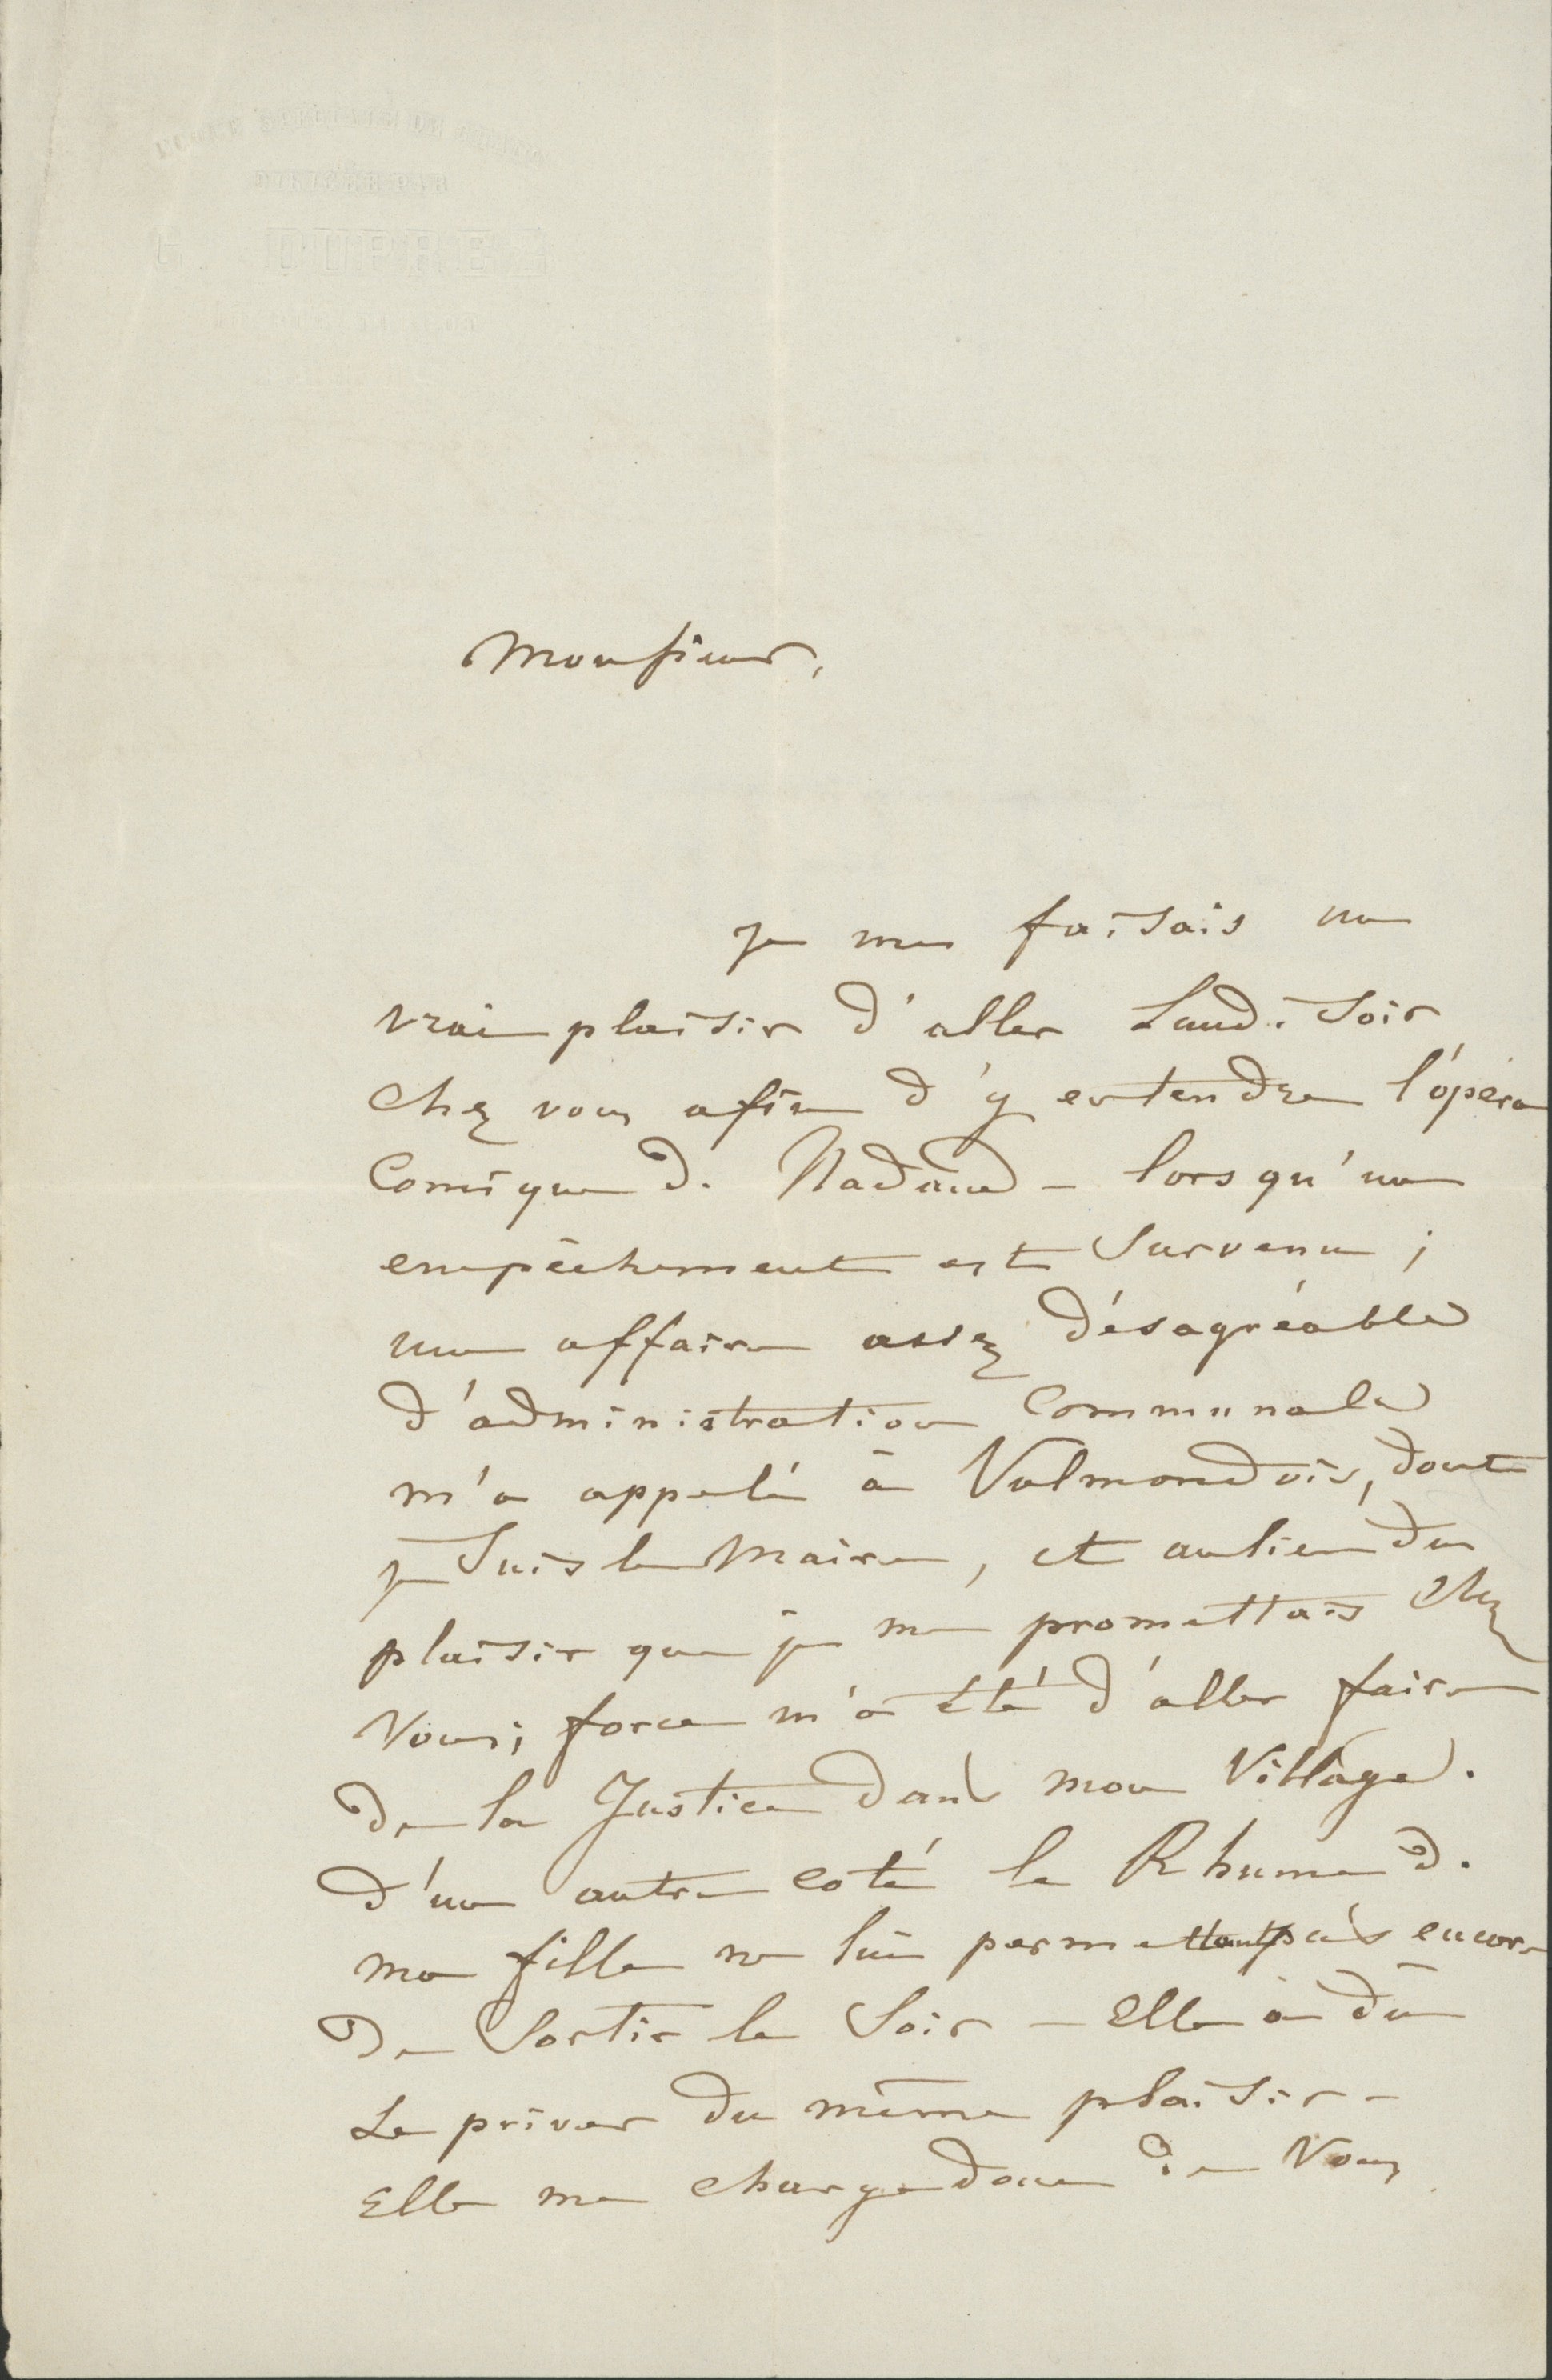 ÉCOLE SPÉCIALE DE CHANT
DIRIGÉE PAR
G. DUPREZ
Monsieur,
je me faisais un
vrai plaisir d'aller Lundi Soir
chez vous afin d'y entendre l'opéra
Comique de Nadaud – lorsqu'un
empêchement est Survenu ;
une affaire assez désagréable
d'administration Communale
m'a appelé à Valmondois, dont
je Suis le Maire, et aulieu du
plaisir que je me promettais chez
Vous; force m'a été d'aller faire
de la Justice dans mon Village.
d'un autre coté le Rhume de
ma fille ne lui permettant pas encore
de Sortir le Soir – Elle a dû
Se priver du même plaisir –
Elle me charge donc de Vous